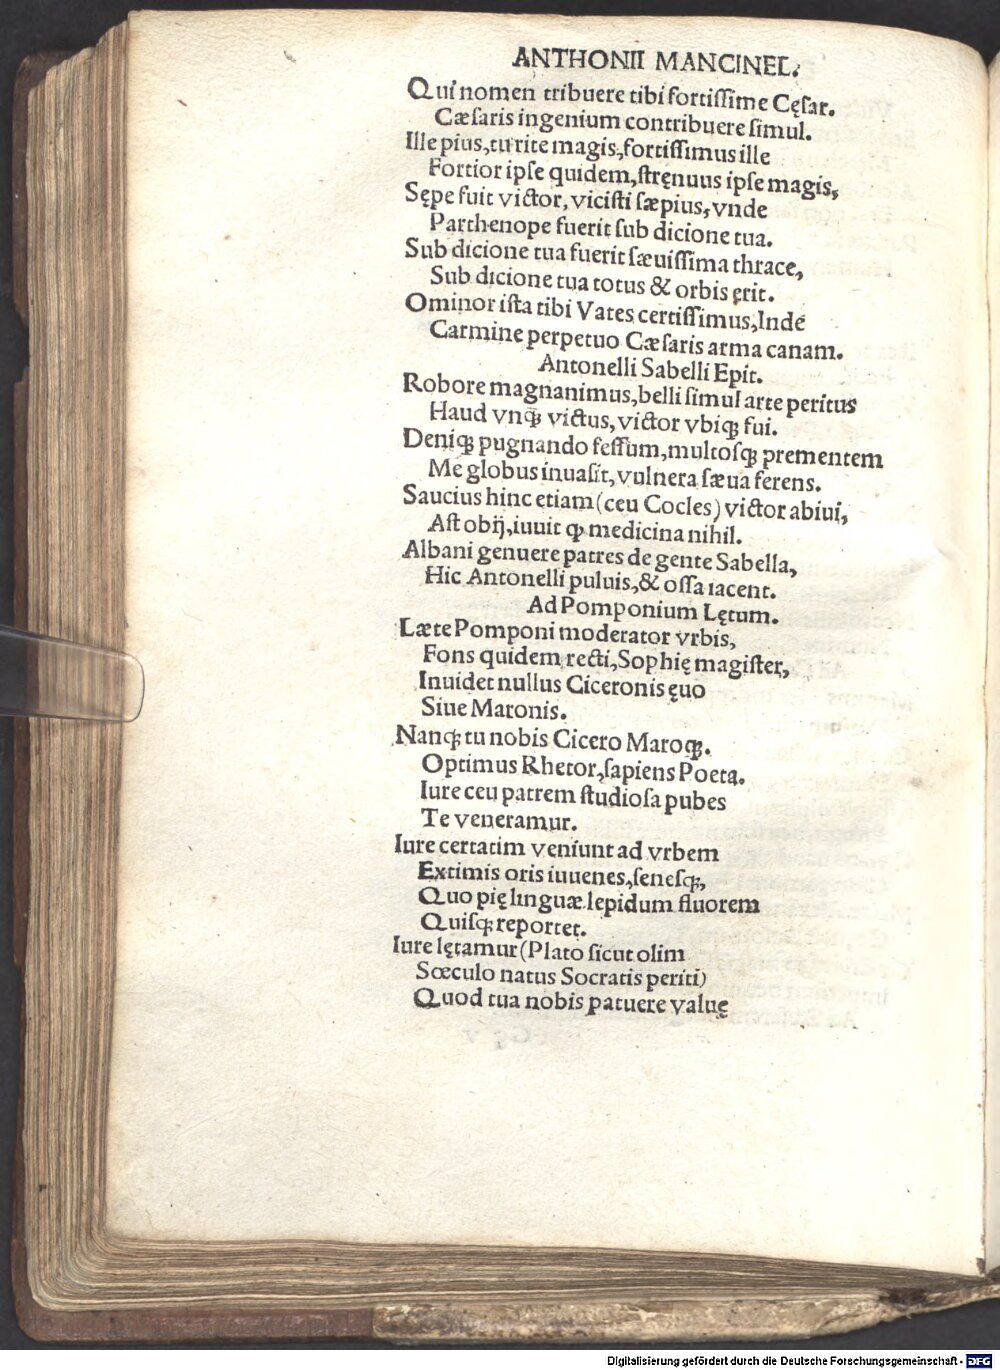 ANTHONII MANCINEL.
Qui nomen tribuere tibi fortissime Cęsar.
Cæsaris ingenium contribuere simul.
Ille pius, tu rite magis, fortissimus ille
Fortior ipse quidem, stręnuus ipse magis,
Sępe fuit victor, vicisti sæpius, vnde
Parthenope fuerit sub dicione tua.
Sub dicione tua fuerit sæuissima thrace,
Sub dicione tua totus & orbis erit.
Ominor ista tibi Vates certissimus, Inde
Carmine perpetuo Cæsaris arma canam.
Antonelli Sabelli Epit.
Robore magnanimus, belli simul arte peritus
Haud vnꝙ victus, victor vbiqꝫ fui.
Deniqꝫ pugnando fessum, multosqꝫ prementem
Me globus inuasit, vulnera sæua ferens.
Saucius hinc etiam (ceu Cocles) victor abiui,
Ast obij, iuuit ꝙ medicina nihil.
Albani genuere patres de gente Sabella,
Hic Antonelli puluis, & ossa iacent.
Ad Pomponium Lętum.
Læte Pomponi moderator vrbis,
Fons quidem recti, Sophię magister,
Inuidet nullus Ciceronis ęuo
Siue Maronis.
Nanqꝫ tu nobis Cicero Maroqꝫ.
Optimus Rhetor, sapiens Poeta.
Iure ceu patrem studiosa pubes
Te veneramur.
Iure certatim veniunt ad vrbem
Extimis oris iuuenes, senesqꝫ,
Quo pię linguæ lepidum fluorem
Quisqꝫ reportet.
Iure lętamur (Plato sicut olim
Sœculo natus Socratis periti)
Quod tua nobis patuere valuę
Digitalisierung gefördert durch die Deutsche Forschungsgemeinschaft - DFG